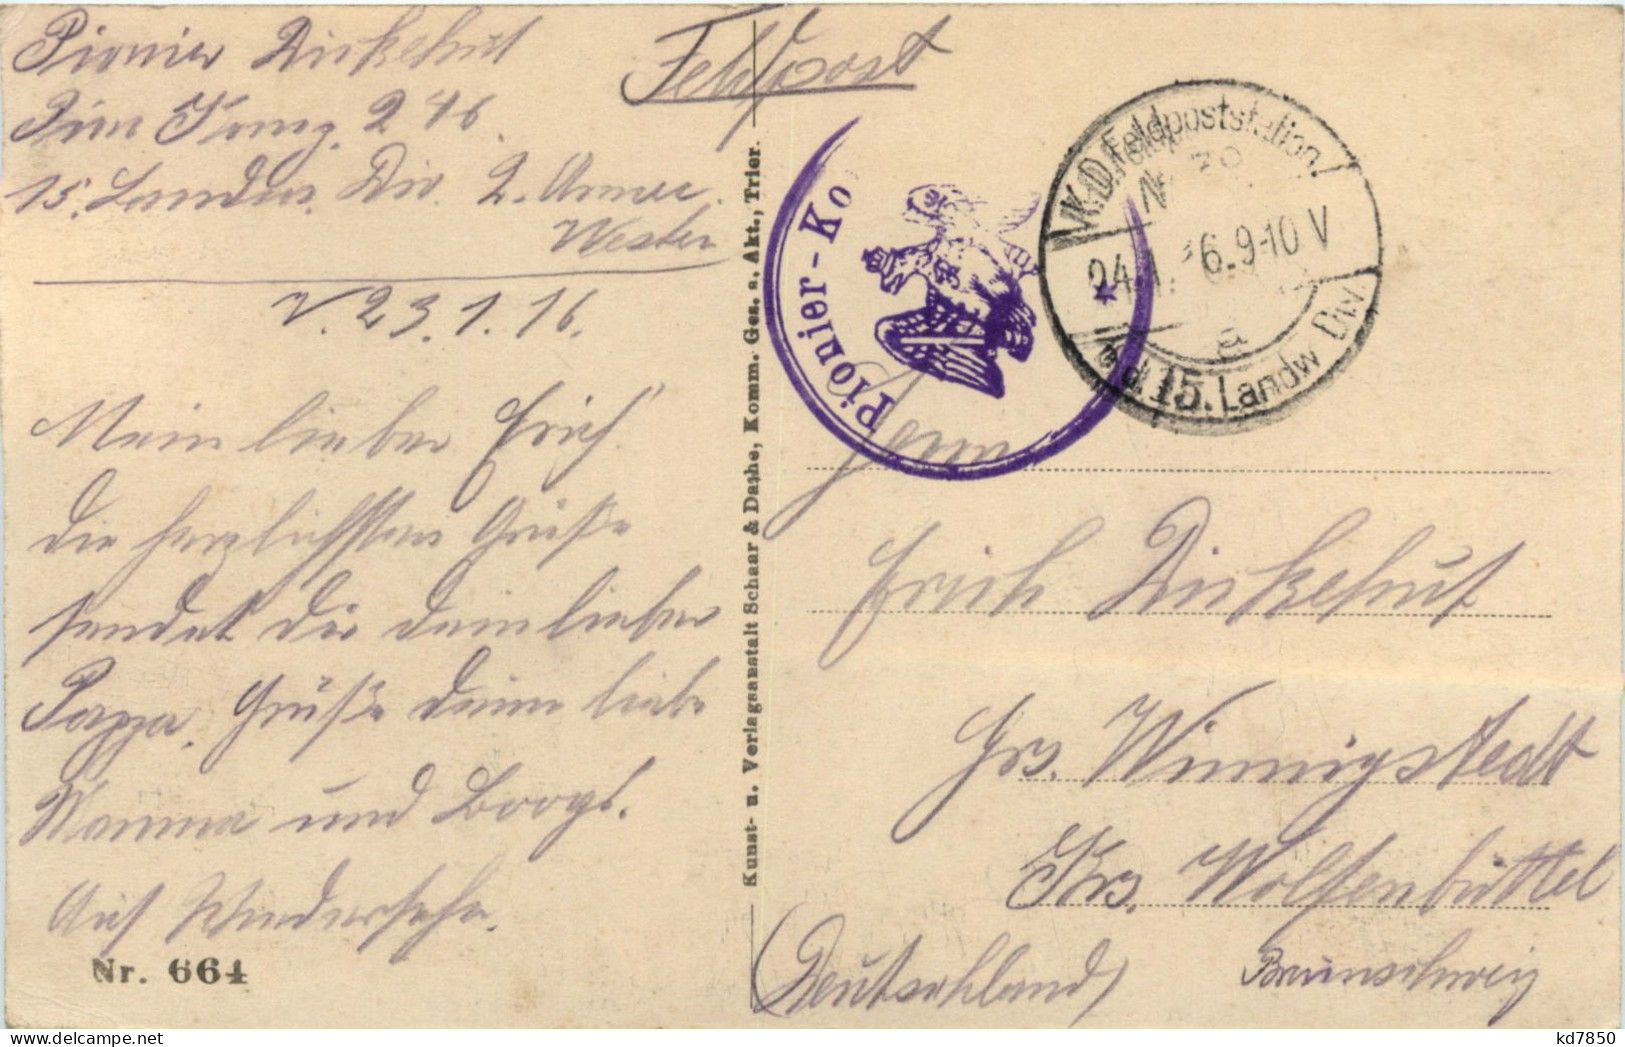 Pionier Dirkehut
Pion Komp. 246
15. Landw. Div. 2. Armee.
Westen
V. 23.1.16.
Mein lieber Erich!
Die herzlichsten Grüße
sendet Dir dein lieber
Pappa. Grüße deine liebe
Mamma und
Auf Wiedersehn.
Nr. 664
Kunst- u. Verlagsanstalt Schaar & Dathe, Komm. Ges. a. Akt., Trier.
Feldpost
Pionier-Ko
K.D.Feldpoststation
Nr.
24.1. 6.9-10V
a
d.15.Landw Div.
Herrn
Erich Dirkehut
Grs. Winnigstedt
Krs. Wolfenbüttel
(Deutschland) Braunschweig
kd7850